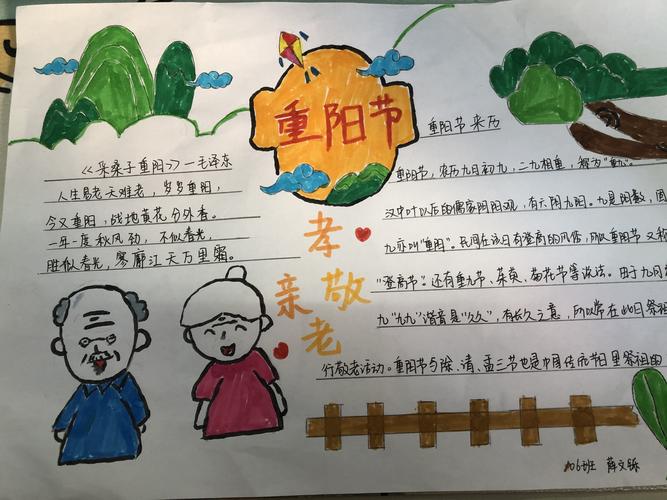 重阳节
《采桑子重阳》—毛泽东
人生易老天难老，岁岁重阳，
今又重阳，战地黄花分外香。
一年一度秋风劲，不似春光，
胜似春光，寥廓江天万里霜。
孝
亲敬
老
重阳节来历
重阳节，农历九月初九，二九相重，称为"重九"。
汉中叶以后的儒家阴阳观，有六阴九阳。九是阳数，固
九亦叫"重阳"。民间在该日有登高的风俗，所以重阳节又称
"登高节"。还有重九节、茱萸、菊花节等说法。由于九月初
九"九九"谐音是"久久"，有长久之意，所以常在此日祭祖
行敬老活动。重阳节与除、清、盂三节也是中国传统节日里祭祖的
106班 薛文铄